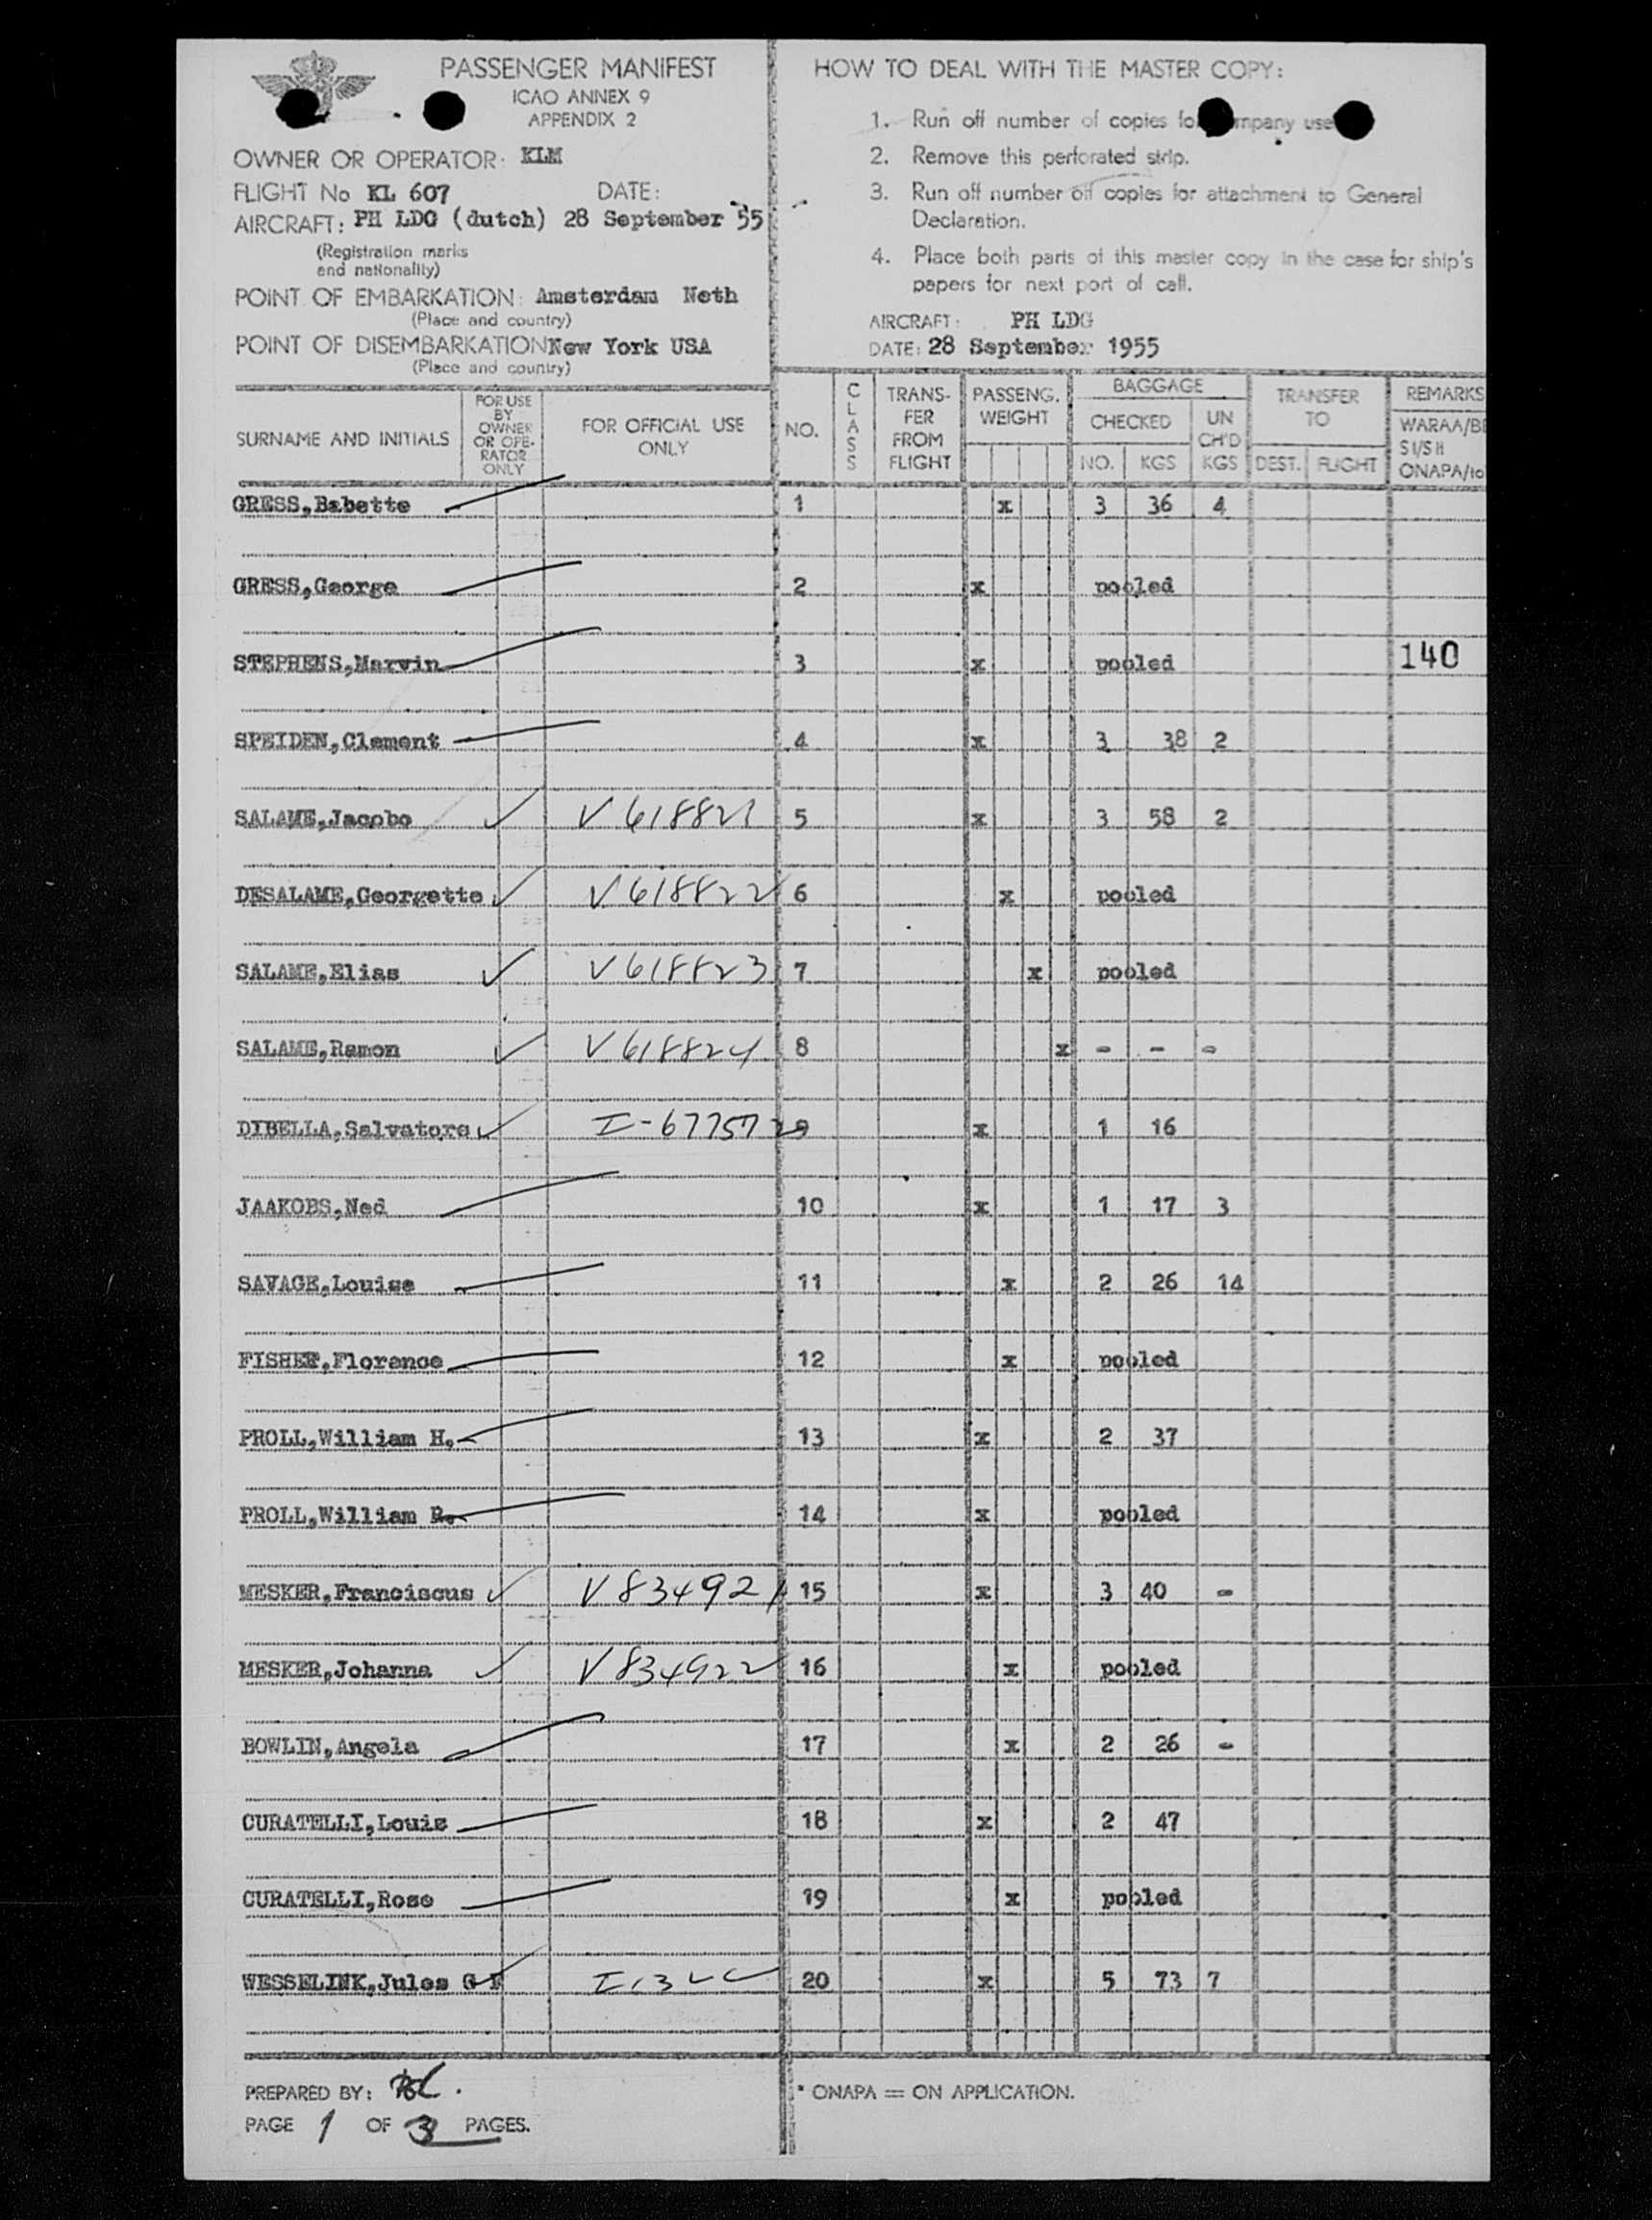 PASSENGER MANIFEST
ICAO ANNEX 9
APPENDIX 2
OWNER OR OPERATOR: KLM
FLIGHT No KL 607 DATE:
AIRCRAFT: PH LDG (dutch) 28 September 55
(Registration marks
and nationality)
POINT OF EMBARKATION: Amsterdam Neth
(Place and country)
POINT OF DISEMBARKATION New York USA
(Place and country)
HOW TO DEAL WITH THE MASTER COPY:
1. Run off number of copies use
2. Remove this perforated strip.
3. Run off number off copies for attachment to General
Declaration.
4. Place both parts of this master copy in the case for ship's
papers for next port of call.
AIRCRAFT: PH LDG
DATE: 28 September 1955
SURNAME AND INITIALS
FOR USE
BY
OWNER
OR OPE-
RATOR
ONLY
FOR OFFICIAL USE
ONLY
NO.
CLASS
TRANS-
FER
FROM
FLIGHT
PASSENG.
WEIGHT
BAGGAGE
CHECKED
NO. KGS
UN
CH'D
KGS
TRANSFER
TO
DEST. FLIGHT
REMARKS
WARAA/BE
SI/SH
ONAPA/to
GRESS,Babette 1 x 3 36 4
GRESS,George 2 x pooled
STEPHENS,Marvin 3 x pooled 140
SPEIDEN,Clement 4 x 3 38 2
SALAME,Jacobo V 618821 5 x 3 58 2
DESALAME,Georgette V 618822 6 x pooled
SALAME,Elias V 618823 7 x pooled
SALAME,Ramon V 618824 8 x - - -
DIBELLA,Salvatore 9 x 1 16
JAAKOBS,Ned 10 x 1 17 3
SAVAGE,Louise 11 x 2 26 14
FISHER,Florence 12 x pooled
PROLL,William H. 13 x 2 37
PROLL,William R. 14 x pooled
MESKER,Franciscus V 834921 15 x 3 40 -
MESKER,Johanna V 834922 16 x pooled
BOWLIN,Angela 17 x 2 26 -
CURATELLI,Louis 18 x 2 47
CURATELLI,Rose 19 x pooled
WESSELINK,Jules G F 20 x 5 73 7
PREPARED BY:
PAGE 1 OF 3 PAGES.
* ONAPA = ON APPLICATION.